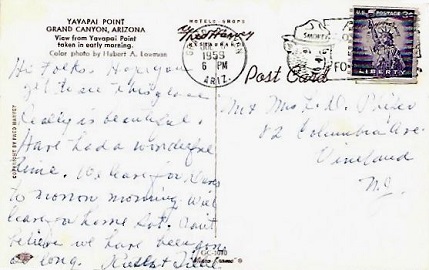 YAVAPAI POINT
GRAND CANYON, ARIZONA
View from Yavapai Point
taken in early morning.
Color photo by Hubert A. Lowman
HOTELS · SHOPS
Fred Harvey
RESTAURANTS
1956
6 PM
ARIZ.
SMOKEY
3¢
LIBERTY
Post Card
Hi Folks. Hope you
get to see this place
really is beautiful.
Have had a wonderful
time. We leave for
to morrow morning will
leave for home Sat. Can't
believe we have been gone
so long.
Mr & Mrs L. W.
82 Columbia Ave.
Vineland
N.J.
COPYRIGHT BY FRED HARVEY